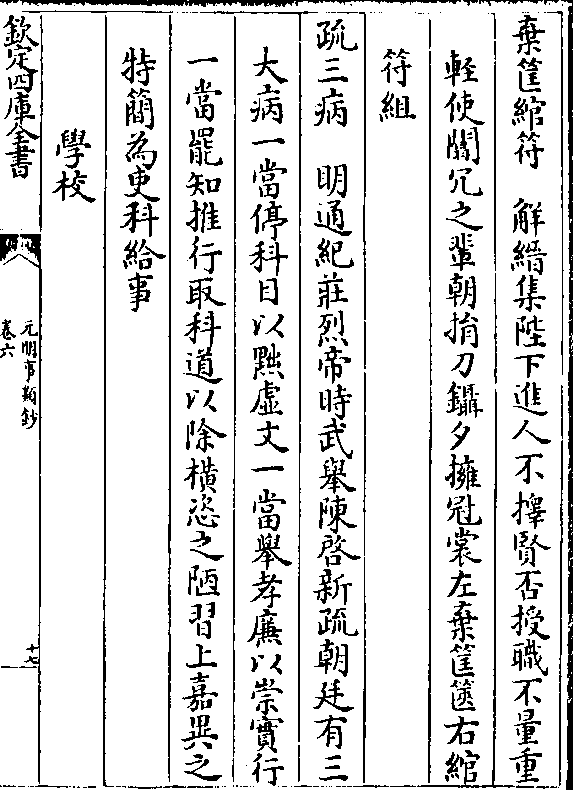 棄筐綰符　解縉集陛下進人不擇賢否授職不量重
軽使闒冗之輩朝捐刀鑷夕擁冠裳左棄筐篋右綰
符組
疏三病　明通紀莊烈帝時武舉陳啓新疏朝廷有三
大病一當停科目以黜虚文一當舉孝廉以崇實行
一當罷知推行取科道以除横恣之陋習上嘉異之
特簡為吏科給事
學校
欽定四庫全書
元明事類鈔
卷六
十七